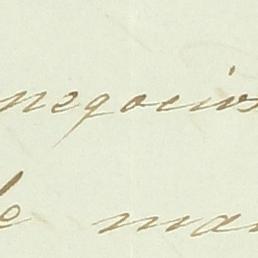 negocios
de mar